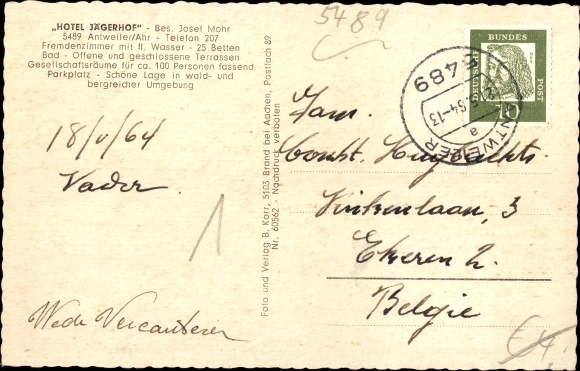 „HOTEL JÄGERHOF" - Bes. Josef Mohr
5489 Antweiler/Ahr - Telefon 207
Fremdenzimmer mit fl. Wasser - 25 Betten
Bad - Offene und geschlossene Terrassen
Gesellschaftsräume für ca. 100 Personen fassend
Parkplatz - Schöne Lage in wald- und
bergreicher Umgebung
5489
18/V/64
Vader.
1
Wede Vercauteren
Foto und Verlag B. Korr, 5103 Brand bei Aachen, Postfach 89
Nr. 60562 - Nachdruck verboten
DEUTSCHE
BUNDES
POST
10
5489
ANTWEILER
a
Fam.
Vinkenlaan, 3
Ekeren 2.
Belgie